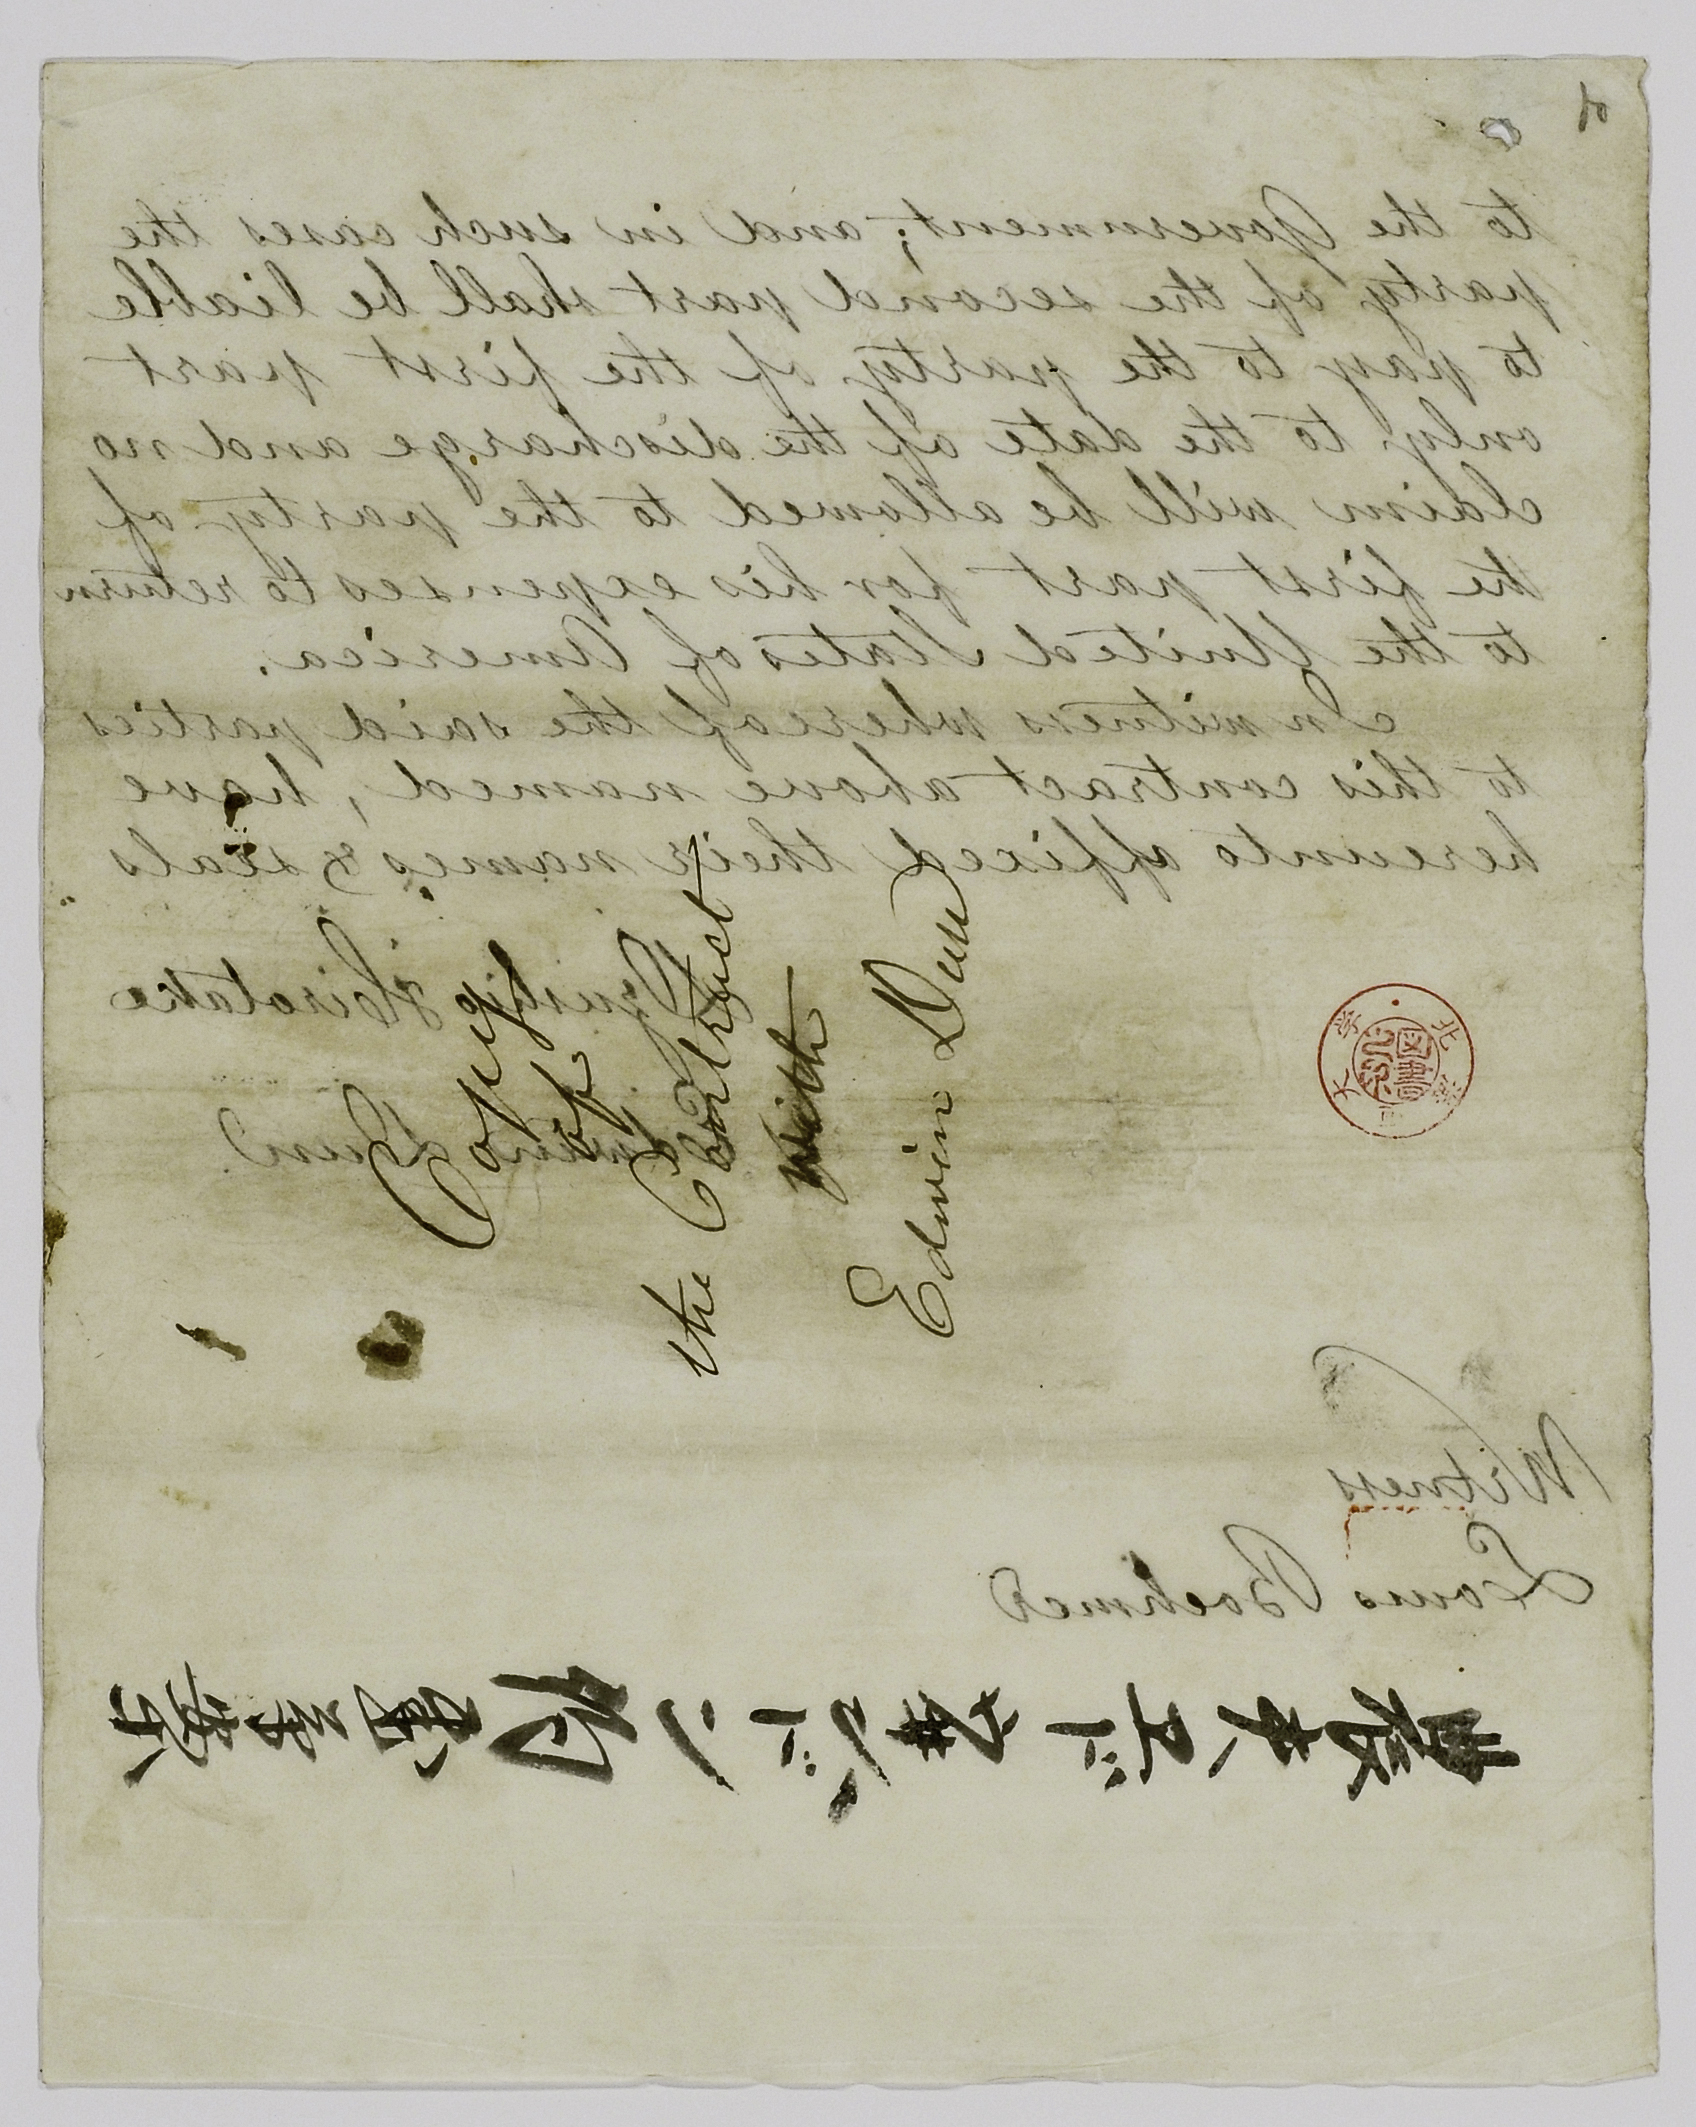 to the Government; and in such cases the
party of the second part shall be liable
to pay to the party of the first part
only to the date of the discharge and no
claim will be allowed to the party of
the first part for his expenses to return
to the United States of America.
In witness whereof the said parties
to this contract above named, have
hereunto affixed their names & seals
Hirotake
Edwin Dun
Copy
of
the Contract
with
Edwin Dun
Witness
Louis Boehmer
図書
北
大学